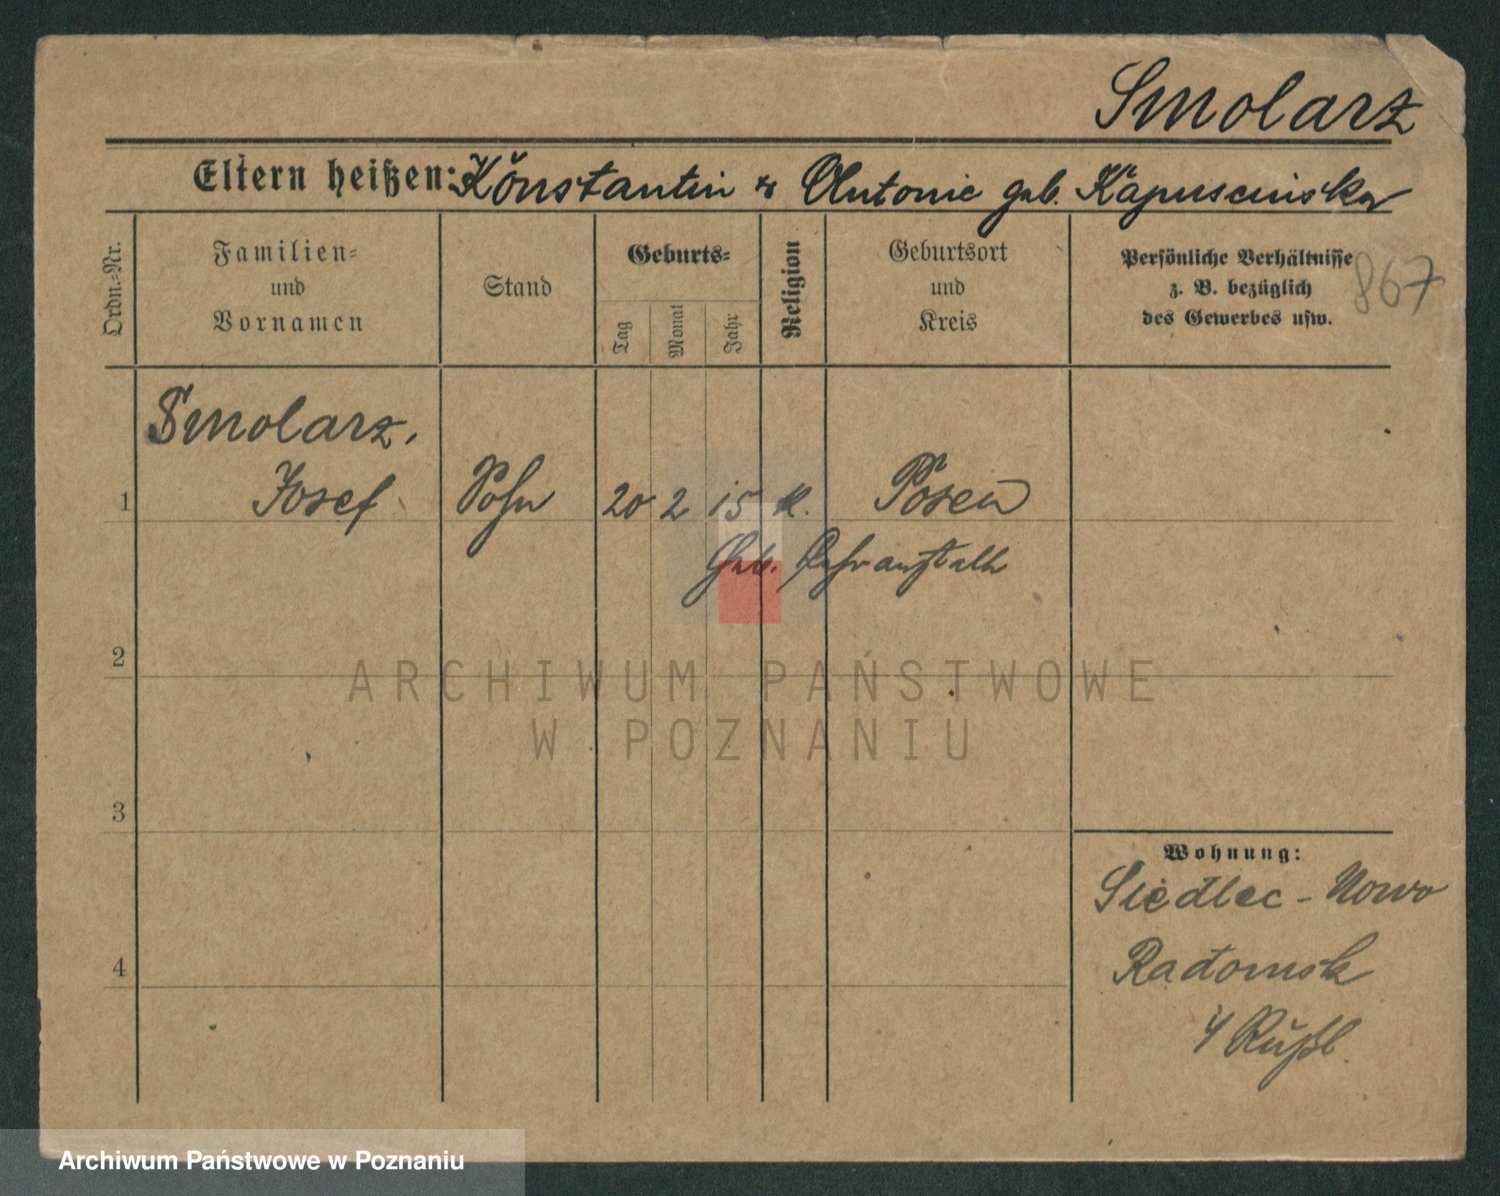 Smolarz
Eltern heißen: Konstantin & Antonie geb. Kapuscinska
Ordn.-Nr.
Familien-
und
Vornamen
Stand
Geburts-
Tag
Monat
Jahr
Religion
Geburtsort
und
Kreis
Persönliche Verhältnisse
z. B. bezüglich
des Gewerbes usw.
867
Smolarz,
1 Josef Sohn 20 2 15 k. Posen
Geb. Lehranstalt
2
ARCHIWUM PAŃSTWOWE
W POZNANIU
3
Wohnung:
Siedlec - Nowo
4 Radomsk
i/ Rußl.
Archiwum Państwowe w Poznaniu